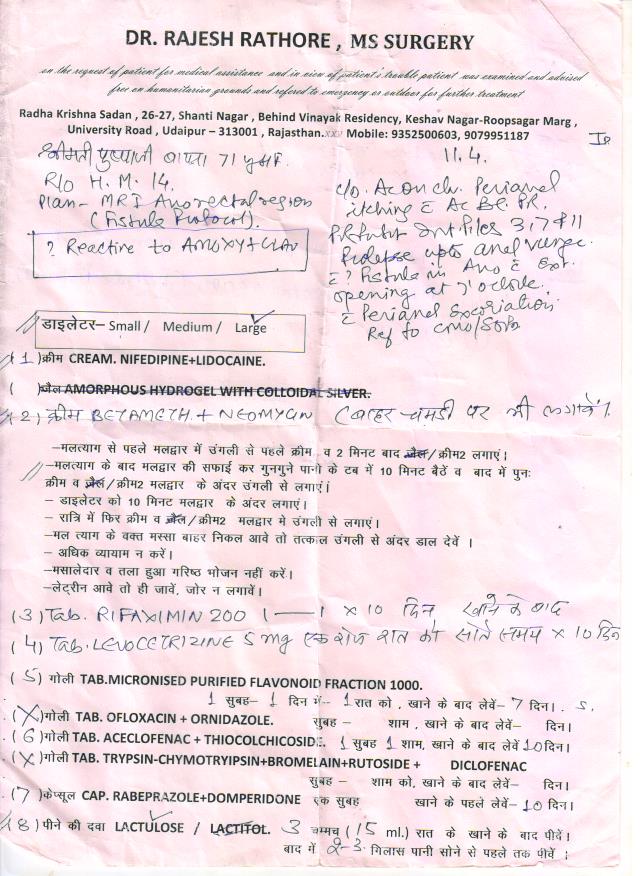 DR. RAJESH RATHORE , MS SURGERY
on the request of patient for medical assistance and in view of patient's trouble patient was examined and advised
free on humanitarian grounds and refered to emergency or outdoor for further treatment
Radha Krishna Sadan , 26-27, Shanti Nagar , Behind Vinayak Residency, Keshav Nagar-Roopsagar Marg ,
University Road , Udaipur – 313001 , Rajasthan.xxx Mobile: 9352500603, 9079951187
श्रीमती पुष्पाजी बापना 71 yr F.
R/o H.M. 14.
Plan- MRI Anorectal region
(Fistula Protocol).
? Reactive to AMOXY+CLAV
11.4.
c/o. Ac on ch. Perianal
itching c Ac Bl. PR.
Int Piles 3,7 & 11
Prolapse upto anal verge.
c ? Fistula in Ano c Ext.
opening at 7 o'clock.
c Perianal Excoriation
Ref to CMO/
डाइलेटर– Small / Medium / Large
(1)क्रीम CREAM. NIFEDIPINE+LIDOCAINE.
( )जैल AMORPHOUS HYDROGEL WITH COLLOIDAL SILVER.
(2) क्रीम BETAMETH. + NEOMYCIN (बाहर चमडी पर भी लगावें।
–मलत्याग से पहले मलद्वार में उंगली से पहले क्रीम व 2 मिनट बाद जैल/क्रीम2 लगाएं।
–मलत्याग के बाद मलद्वार की सफाई कर गुनगुने पानी के टब में 10 मिनट बैठें व बाद में पुनः
क्रीम व जैल/क्रीम2 मलद्वार के अंदर उंगली से लगाएं।
– डाइलेटर को 10 मिनट मलद्वार के अंदर लगाएं।
– रात्रि में फिर क्रीम व जैल/क्रीम2 मलद्वार मे उंगली से लगाएं।
– मल त्याग के वक्त मस्सा बाहर निकल आवे तो तत्काल उंगली से अंदर डाल देवें ।
– अधिक व्यायाम न करें।
–मसालेदार व तला हुआ गरिष्ठ भोजन नहीं करें।
–लेट्रीन आवे तो ही जावें, जोर न लगावें।
(3) Tab. RIFAXIMIN 200 1 — 1 x 10 दिन खाने के बाद
(4) Tab. LEVOCETRIZINE 5 mg एक रोज रात को सोते समय x 10 दिन
(5) गोली TAB.MICRONISED PURIFIED FLAVONOID FRACTION 1000.
1 सुबह– 1 दिन में– 1 रात को , खाने के बाद लेवें– 7 दिन। . S.
(X)गोली TAB. OFLOXACIN + ORNIDAZOLE. सुबह – शाम , खाने के बाद लेवें– दिन।
(6 गोली TAB. ACECLOFENAC + THIOCOLCHICOSIDE. 1 सुबह 1 शाम, खाने के बाद लेवें 10 दिन।
(X) गोली TAB. TRYPSIN-CHYMOTRYIPSIN+BROMELAIN+RUTOSIDE + DICLOFENAC
सुबह – शाम को, खाने के बाद लेवें– दिन।
(7)केप्सूल CAP. RABEPRAZOLE+DOMPERIDONE एक सुबह खाने के पहले लेवें– 10 दिन।
(8) पीने की दवा LACTULOSE / LACTITOL. 3 चम्मच ( 15 ml.) रात के खाने के बाद पीवें।
बाद में 2-3 गिलास पानी सोने से पहले तक पीवें ।